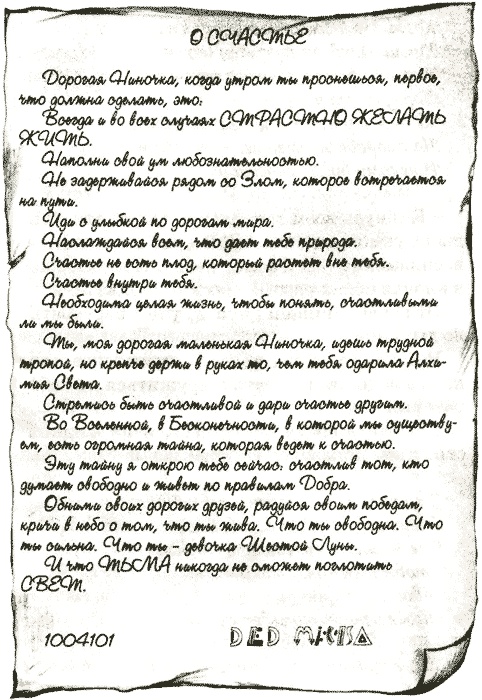 О СЧАСТЬЕ
Дорогая Ниночка, когда утром ты проснешься, первое,
что должна сделать, это:
Всегда и во всех случаях СТРАСТНО ЖЕЛАТЬ
ЖИТЬ.
Наполни свой ум любознательностью.
Не задерживайся рядом со Злом, которое встречается
на пути.
Иди с улыбкой по дорогам мира.
Наслаждайся всем, что дает тебе природа.
Счастье не есть плод, который растет вне тебя.
Счастье внутри тебя.
Необходима целая жизнь, чтобы понять, счастливыми
ли мы были.
Ты, моя дорогая маленькая Ниночка, идешь трудной
тропой, но крепче держи в руках то, чем тебя одарила Алхи-
мия Света.
Стремись быть счастливой и дари счастье другим.
Во Вселенной, в Бесконечности, в которой мы существу-
ем, есть огромная тайна, которая ведет к счастью.
Эту тайну я открою тебе сейчас: счастлив тот, кто
думает свободно и живет по правилам Добра.
Обними своих дорогих друзей, радуйся своим победам,
кричи в небо о том, что ты жива. Что ты свободна. Что
ты сильна. Что ты – девочка Шестой Луны.
И что ТЬМА никогда не сможет поглотить
СВЕТ.
1004101 DED MИША